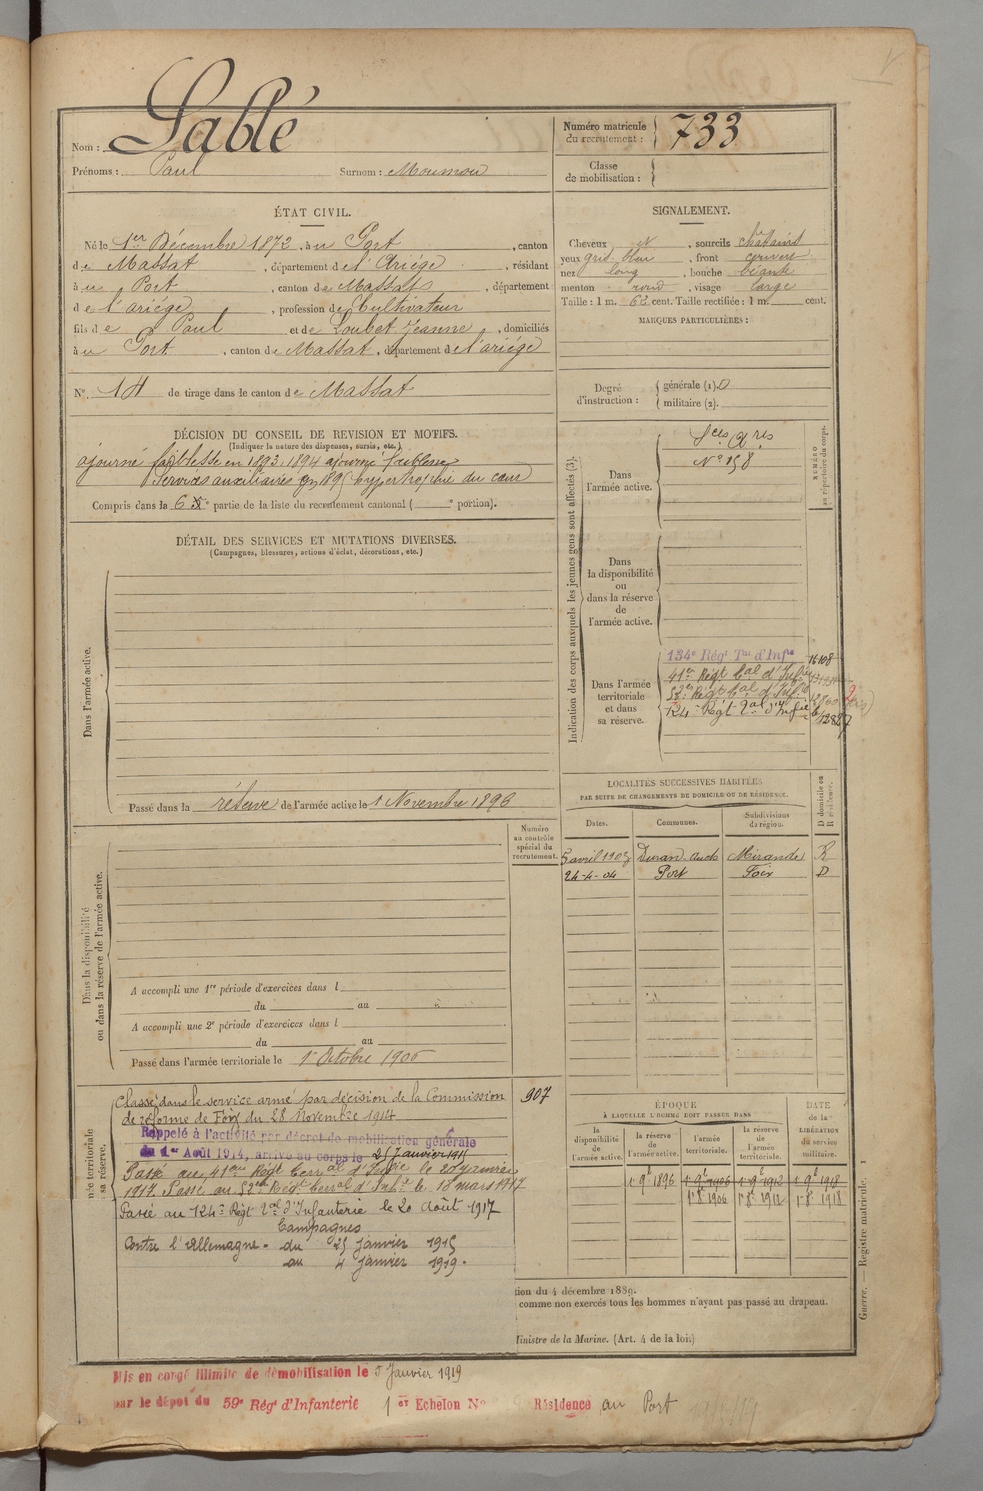 Nom : Sablé
Prénoms : Paul Surnom : Moumou
Numéro matricule du recrutement : 733
Classe de mobilisation :
ÉTAT CIVIL.
Né le 1er Décembre 1872, à u Port, canton
de Massat, département de l'Ariége, résidant
à u Port, canton de Massat, département
de l'ariége, profession de Cultivateur
fils de Paul et de Loubet Jeanne, domiciliés
à u Port, canton de Massat, département de l'ariége
N° 14 de tirage dans le canton de Massat
SIGNALEMENT.
Cheveux N, sourcils chatains
yeux gris bleu, front couvert
nez long, bouche béante
menton rond, visage large
Taille : 1 m. 62 cent. Taille rectifiée : 1 m. cent.
MARQUES PARTICULIÈRES :
Degré d'instruction : générale (1). 0
militaire (2).
DÉCISION DU CONSEIL DE REVISION ET MOTIFS.
(Indiquer la nature des dispenses, sursis, etc.)
ajourné faiblesse en 1893. 1894 ajourné faiblesse
Services auxiliaires en 1895 hypertrophie du cœur
Compris dans la 6e partie de la liste du recrutement cantonal ( e portion).
DÉTAIL DES SERVICES ET MUTATIONS DIVERSES.
(Campagnes, blessures, actions d'éclat, décorations, etc.)
Dans l'armée active.
Passé dans la réserve de l'armée active le 1 Novembre 1896
Indication des corps auxquels les jeunes gens sont affectés (3).
NUMÉRO au répertoire du corps.
Dans l'armée active.
Sces Ares
N° 158
Dans la disponibilité ou dans la réserve de l'armée active.
Dans l'armée territoriale et dans sa réserve.
134e Régt Tal d'Infie 16108
41er Régt Cal d'Infie
52er Régt Cal d'Infie
124e Régt Tal d'Infie
LOCALITÉS SUCCESSIVES HABITÉES
PAR SUITE DE CHANGEMENTS DE DOMICILE OU DE RÉSIDENCE.
Dates. Communes. Subdivisions de région. D domicile ou R résidence.
5 avril 1903 Duran Auch Mirande R
24-4-04 Port Foix D
Dans la disponibilité ou dans la réserve de l'armée active.
Numéro au contrôle spécial du recrutement.
A accompli une 1re période d'exercices dans l
du au
A accompli une 2e période d'exercices dans l
du au
Passé dans l'armée territoriale le 1er Octobre 1906
907
Classé dans le service armé par décision de la Commission
de réforme de Foix du 28 Novembre 1914
Rappelé à l'activité par décret de mobilisation générale
du 1er Août 1914, arrivé au corps le 25 Janvier 1915
Passé au 41eme Régt Terral d'Infie le 20 Janvier
1917. Passé au 52em Régt Terral d'Infie le 18 mars 1917
Passé au 124e Régt Tal d'Infanterie le 20 août 1917
Campagnes
Contre l'Allemagne - du 25 janvier 1915
au 4 janvier 1919.
ÉPOQUE
À LAQUELLE L'HOMME DOIT PASSER DANS
DATE DE LA LIBÉRATION du service militaire.
la disponibilité de l'armée active. la réserve de l'armée active. l'armée territoriale. la réserve de l'armée territoriale.
1 9e 1896 1 9e 1906 1 9e 1912 1 9e 1918
1r 8e 1906 1r 8e 1912 1r 8e 1918
tion du 4 décembre 1889.
comme non exercés tous les hommes n'ayant pas passé au drapeau.
Ministre de la Marine. (Art. 4 de la loi.)
Guerre. — Registre matricule. 1
Mis en congé illimité de démobilisation le 5 Janvier 1919
par le dépôt du 59e Régt d'Infanterie 1er Echelon No Résidence au Port